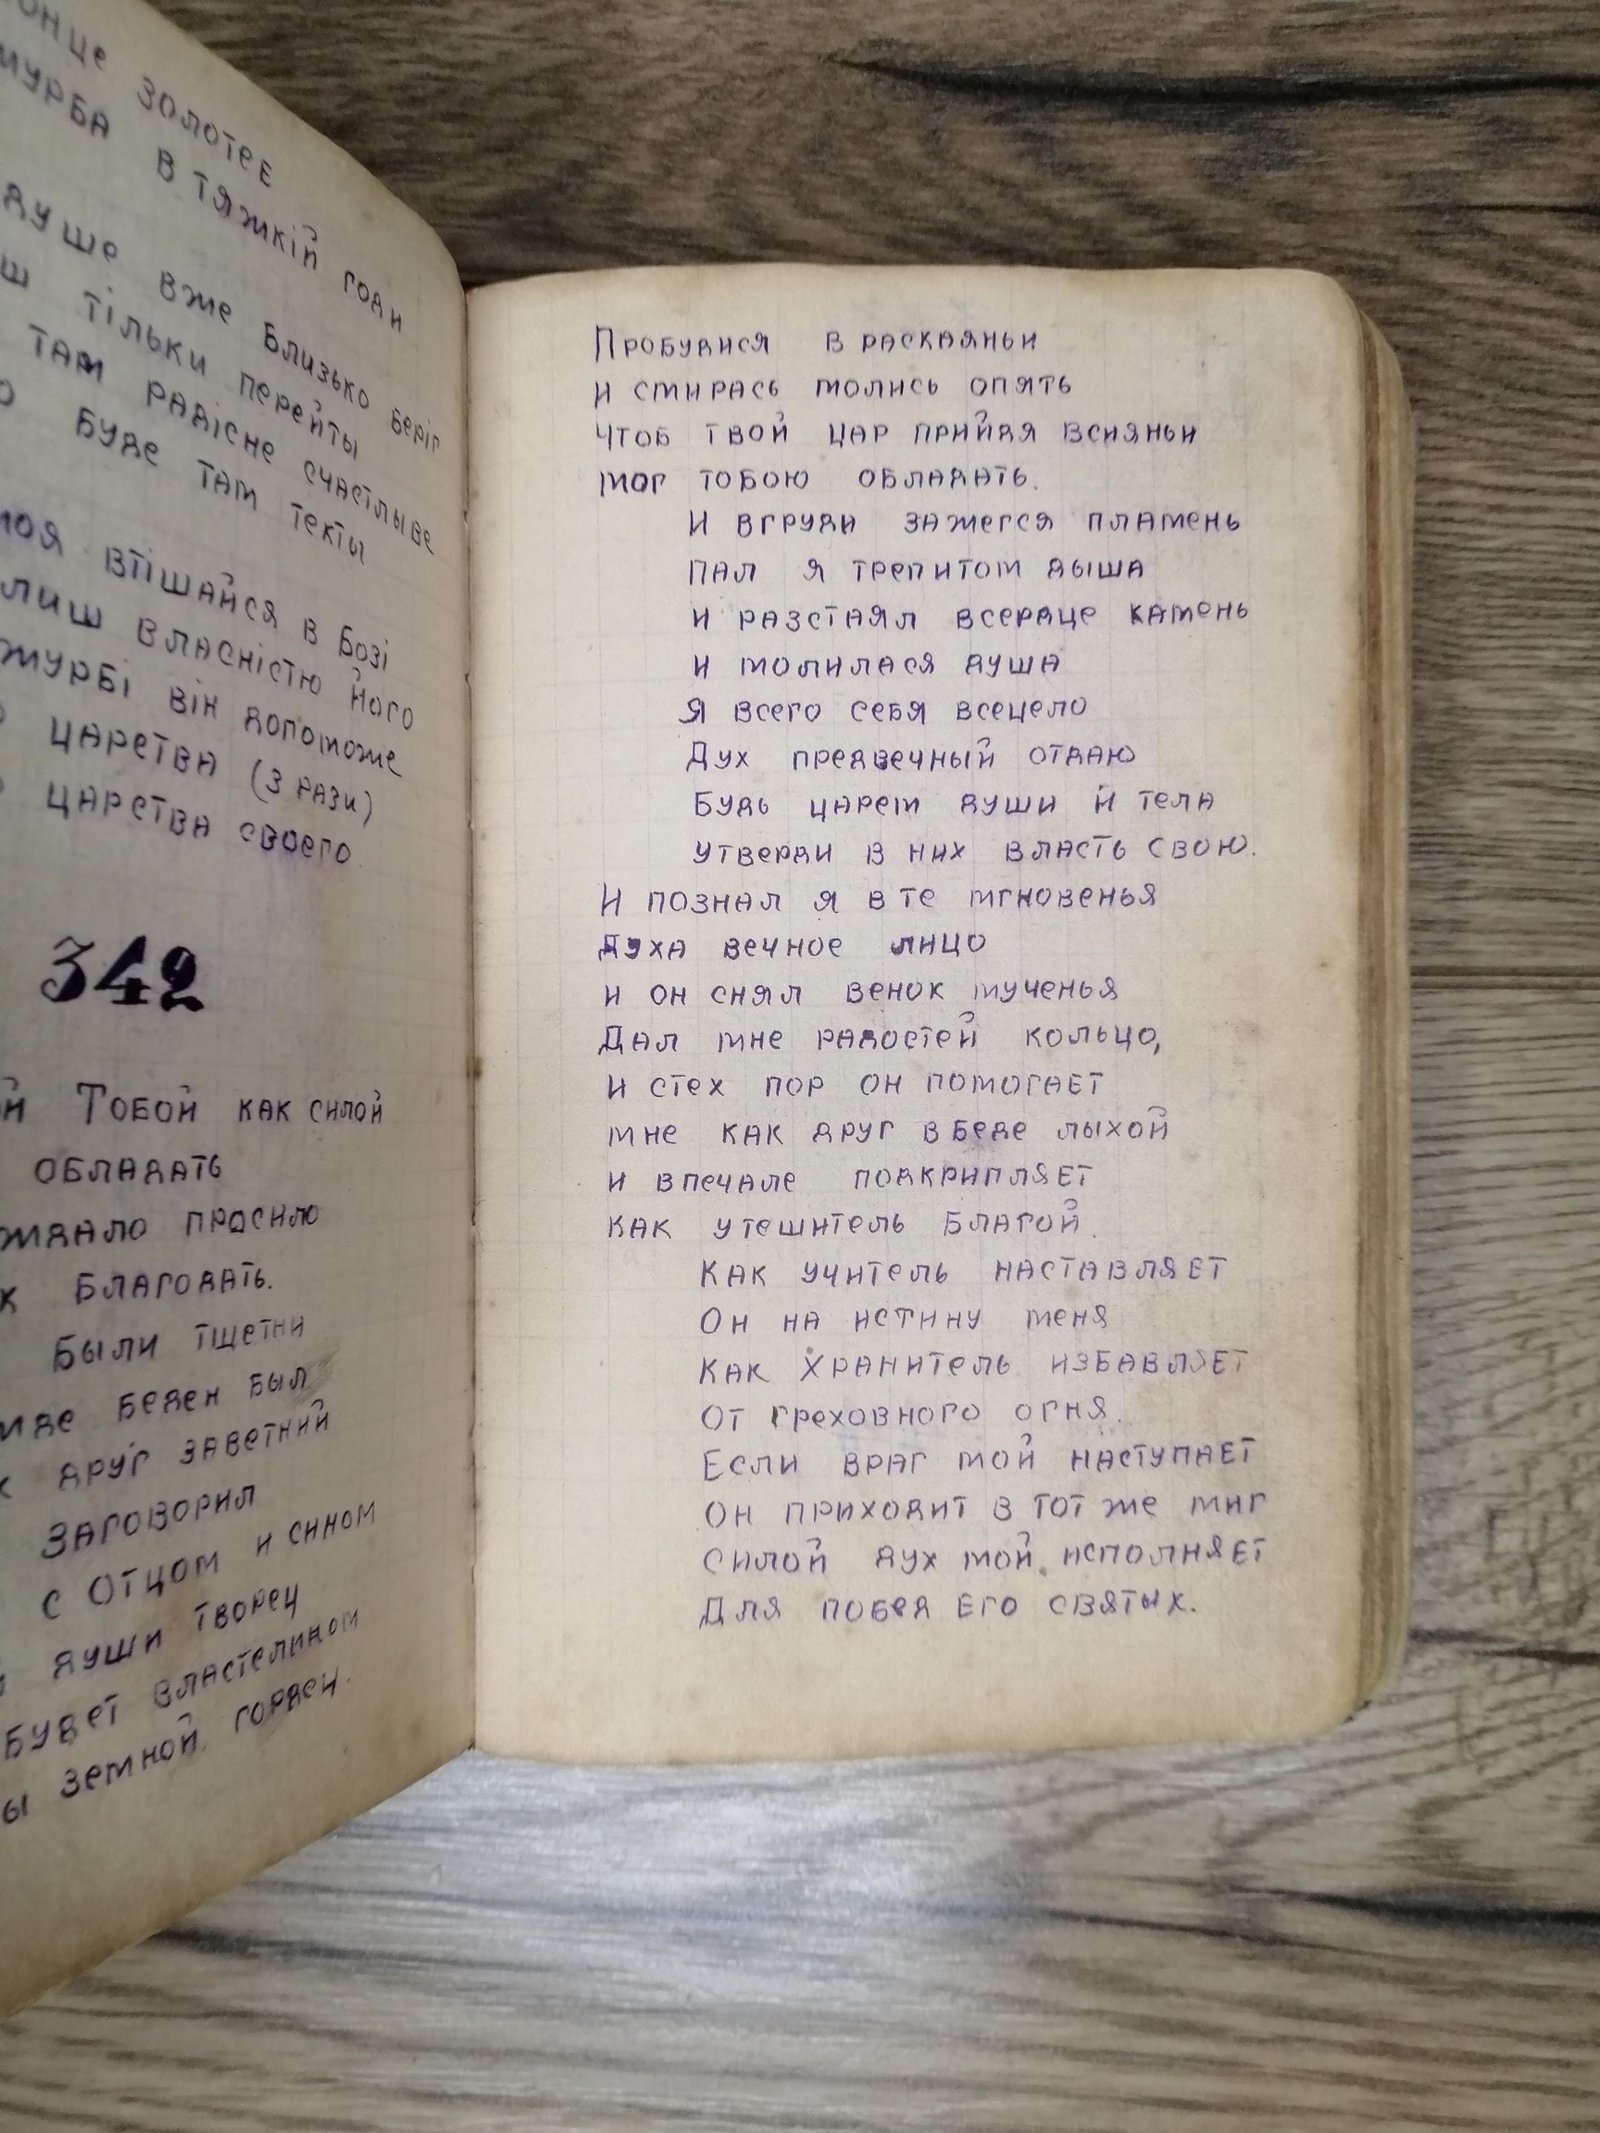 золотее
в тяжкій годи
душе вже близько беріг
тільки перейты
там радісне счастлыве
буде там текты
втішайся в Бозі
власністю його
журбі він допоможе
царства (3 рази)
царства своего.
342
Тобой как силой
обладать
просило
благодать.
были тщетни
беден был
друг заветний
заговорил
с Отцом и сином
души творец
будет властелином
земной гордец.
Пробудися в раскаяньи
и смирась молись опять
чтоб твой цар прийдя всияньи
мог тобою обладать.
И вгруди зажегся пламень
пал я трепитом дыша
и разстаял всердце камень
и молилася душа
Я всего себя всецело
Дух предвечный отдаю
Будь царем души и тела
утверди в них власть свою.
И познал я в те мгновенья
Духа вечное лицо
и он снял венок мученья
Дал мне радостей кольцо,
и стех пор он помогает
мне как друг в беде лыхой
и впечале подкрипляет
как утешитель благой.
Как учитель наставляет
Он на истину меня
Как хранитель избавляет
От греховного огня.
Если враг мой наступает
Он приходит в тот же миг
Силой дух мой исполняет
Для побед его святых.